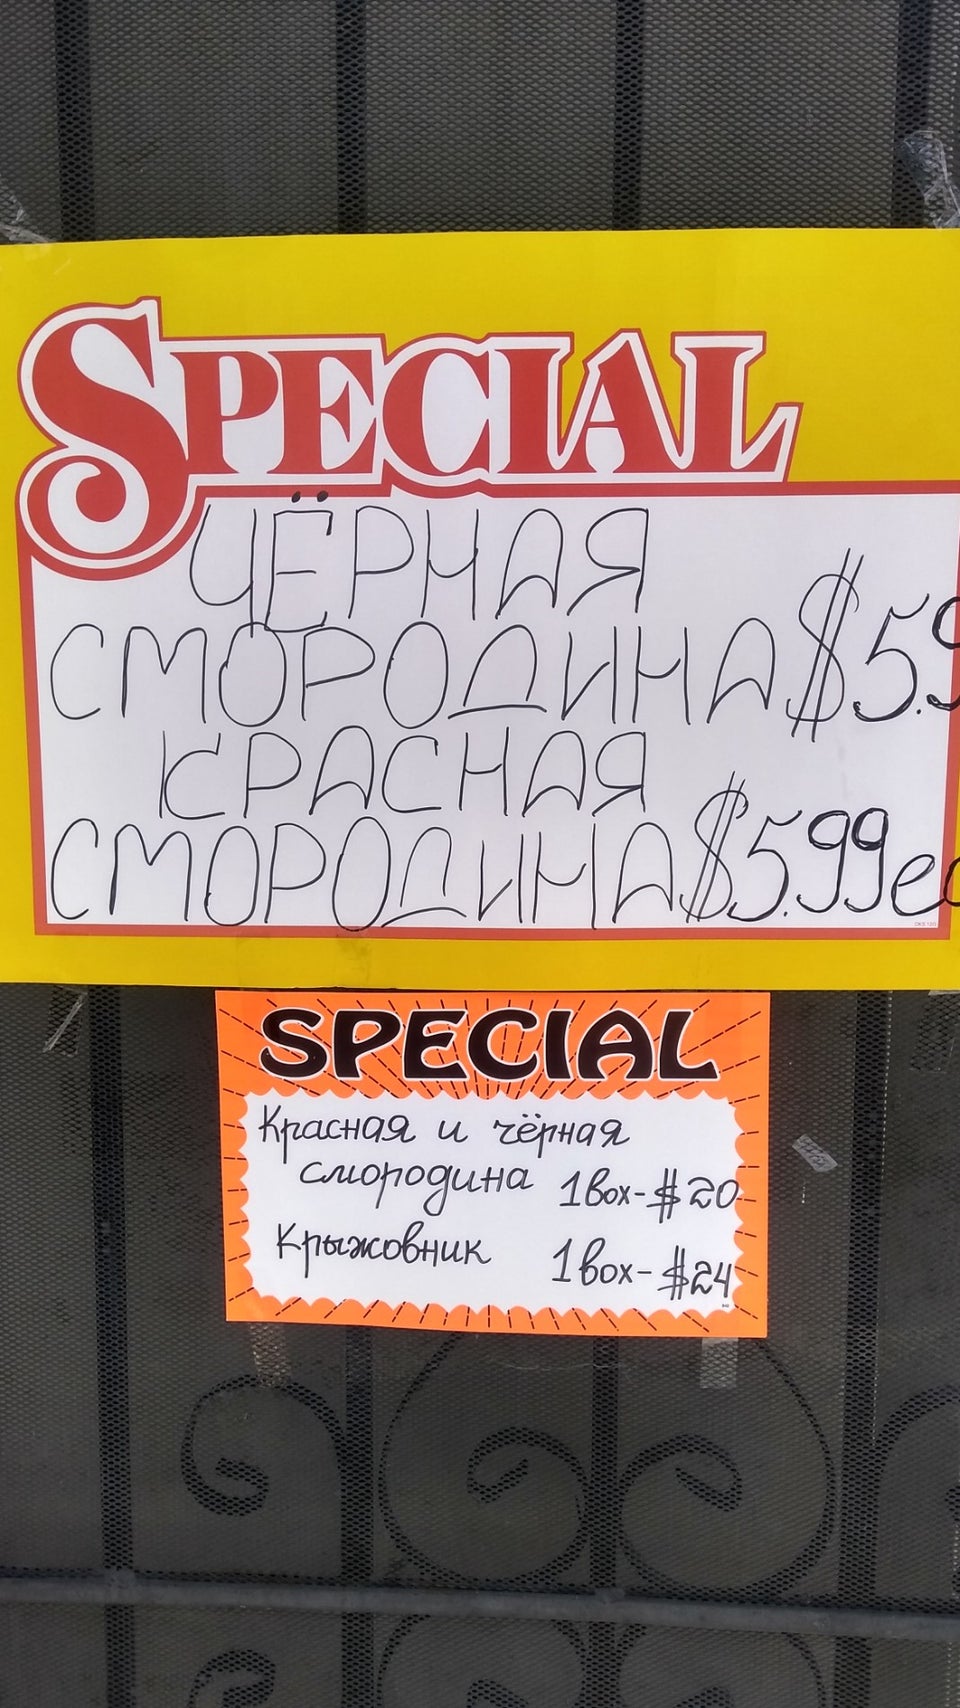 SPECIAL
ЧЁРНАЯ
СМОРОДИНА $5.9
КРАСНАЯ
СМОРОДИНА $5.99 ea
SPECIAL
Красная и чёрная
смородина 1 box - $20
Крыжовник 1 box - $24